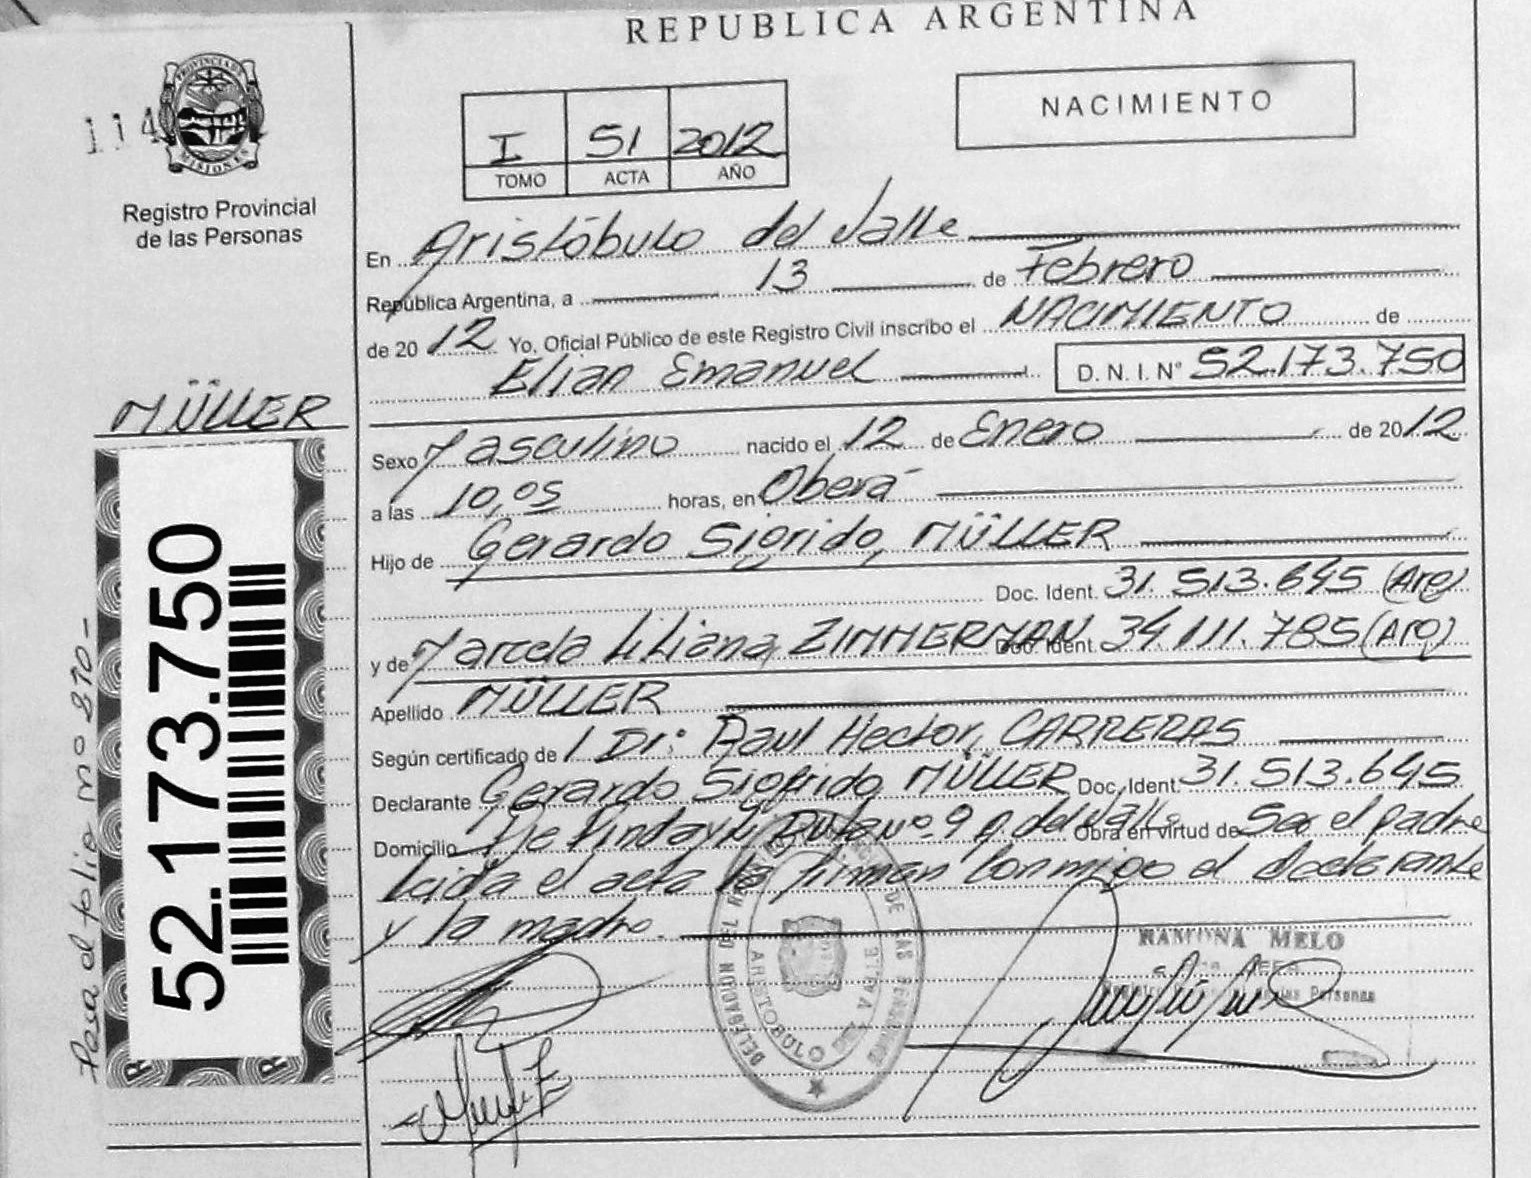 REPUBLICA ARGENTINA
114
PROVINCIA DE MISIONES
Registro Provincial
de las Personas
I 51 2012
TOMO ACTA AÑO
NACIMIENTO
En Aristóbulo del Valle
República Argentina, a 13 de Febrero
de 2012 Yo, Oficial Público de este Registro Civil inscribo el NACIMIENTO de
Elian Emanuel D. N. I. N° 52.173.750
MÜLLER
Sexo Masculino nacido el 12 de Enero de 2012
a las 10,05 horas, en Oberá
Hijo de Gerardo Sigfrido, MÜLLER
Doc. Ident. 31.513.645 (Arg)
y de Marcela Liliana, ZIMMERMAN Doc. Ident. 34.111.785 (Arg)
Apellido MÜLLER
Según certificado de l Dr: Raul Hector, CARRERAS
Declarante Gerardo Sigfrido MÜLLER Doc. Ident. 31.513.645
Domicilio Pindayti Ruta nº 9 A. del Valle Obra en virtud de Ser el padre
Leida el acta la firman conmigo el Declarante
y la madre.
52.173.750
Para el folio nº 870-
DELEGACION DEL REGISTRO PROVINCIAL DE LAS PERSONAS
ARISTOBULO DEL VALLE
RAMONA MELO
JEFA
Registro Provincial de las Personas